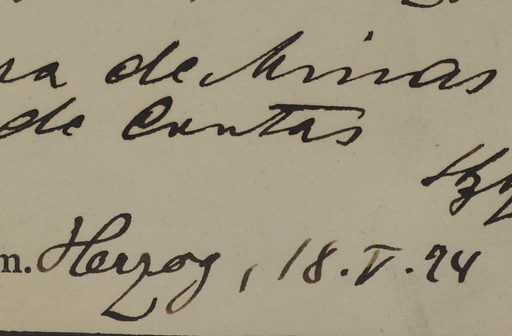 ra de Minas
de Contas
m. Herzog, 18.V.94